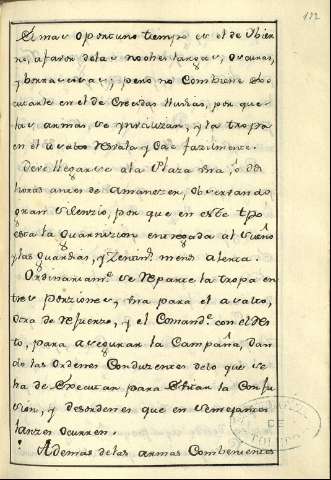 112
El mas oportuno tiempo es el de Ybier
no, a favor delas noches largas, obscuras,
y borrascosas; pero no Combiene exe
cutarle en el de Crecidas lluvias, por que
las armas se ynutilizan, y la tropa
en el asalto Resvala y Cae fazilmente.
Deve llegarse ala Plaza Una, ó dos
horas antes de Amanezer, observando
gran silenzio, por que en este tpo
esta la Guarnizion entregada al sueño
y las Guardias, y Zentins. menos alerta.
Ordinariamte. se Reparte la tropa en
tres porziones, Una para el asalto,
otra de Refuerzo, y el Comandte. con el Res
to, para asegurar la Campaña, dan
do las ordenes Conduzentes delo que se
ha de Executar para Evitar la Confu
sion, y desordenes que en semejantes
lanzes ocurren.
Además delas armas Combenientes
DE
TOLEDO